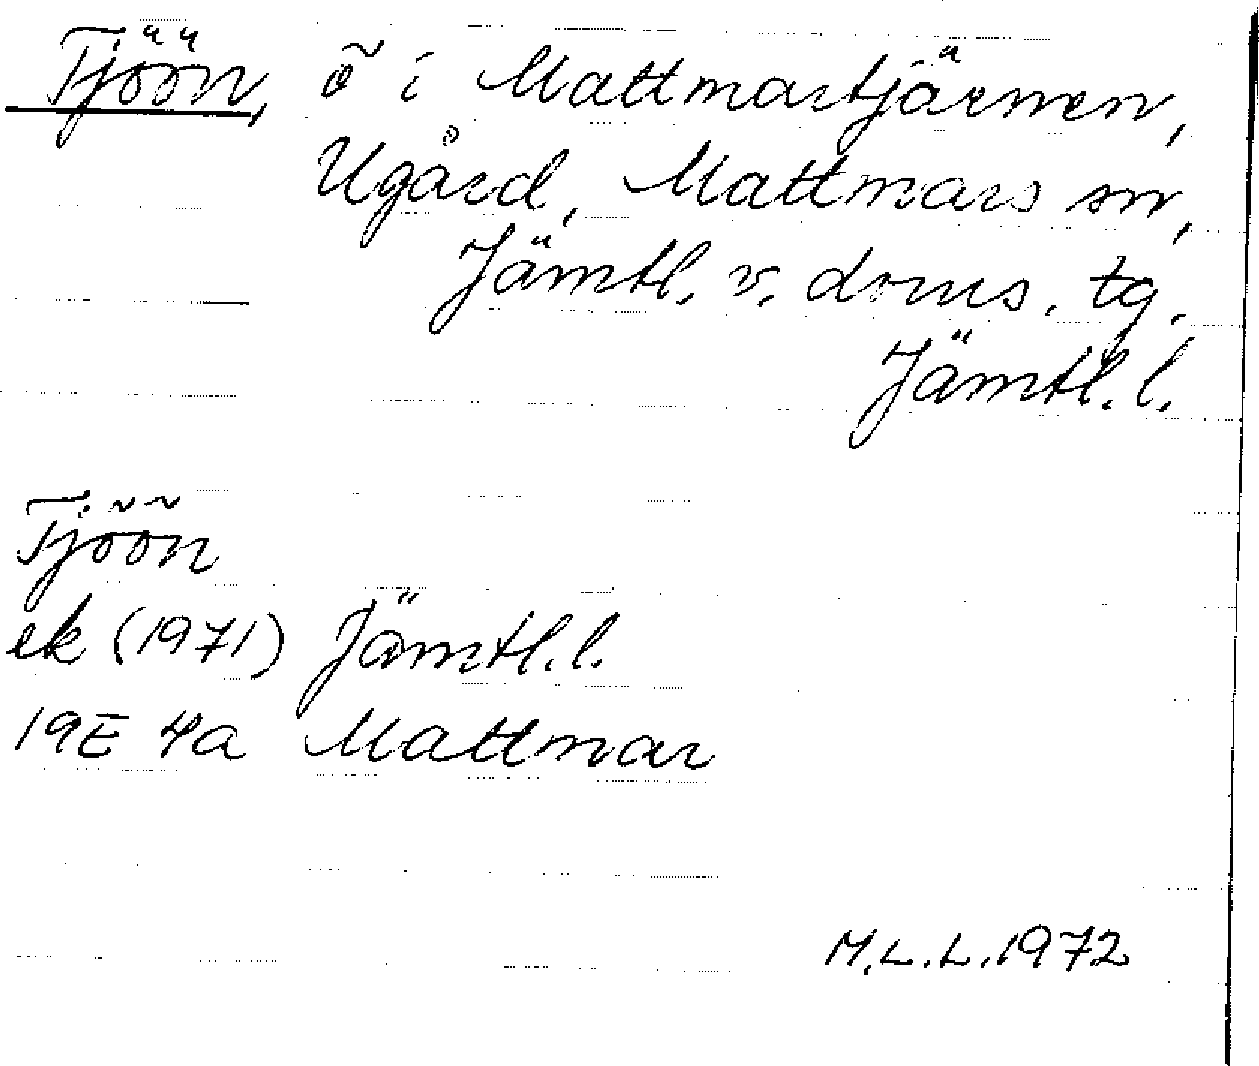 Tjöön, ö i Mattmartjärnen,
Ugård, Mattmars sn,
Jämtl. v. doms. tg.
Jämtl. l.
Tjöön
ek (1971) Jämtl. l.
19E 4a Mattmar
M.L.L. 1972